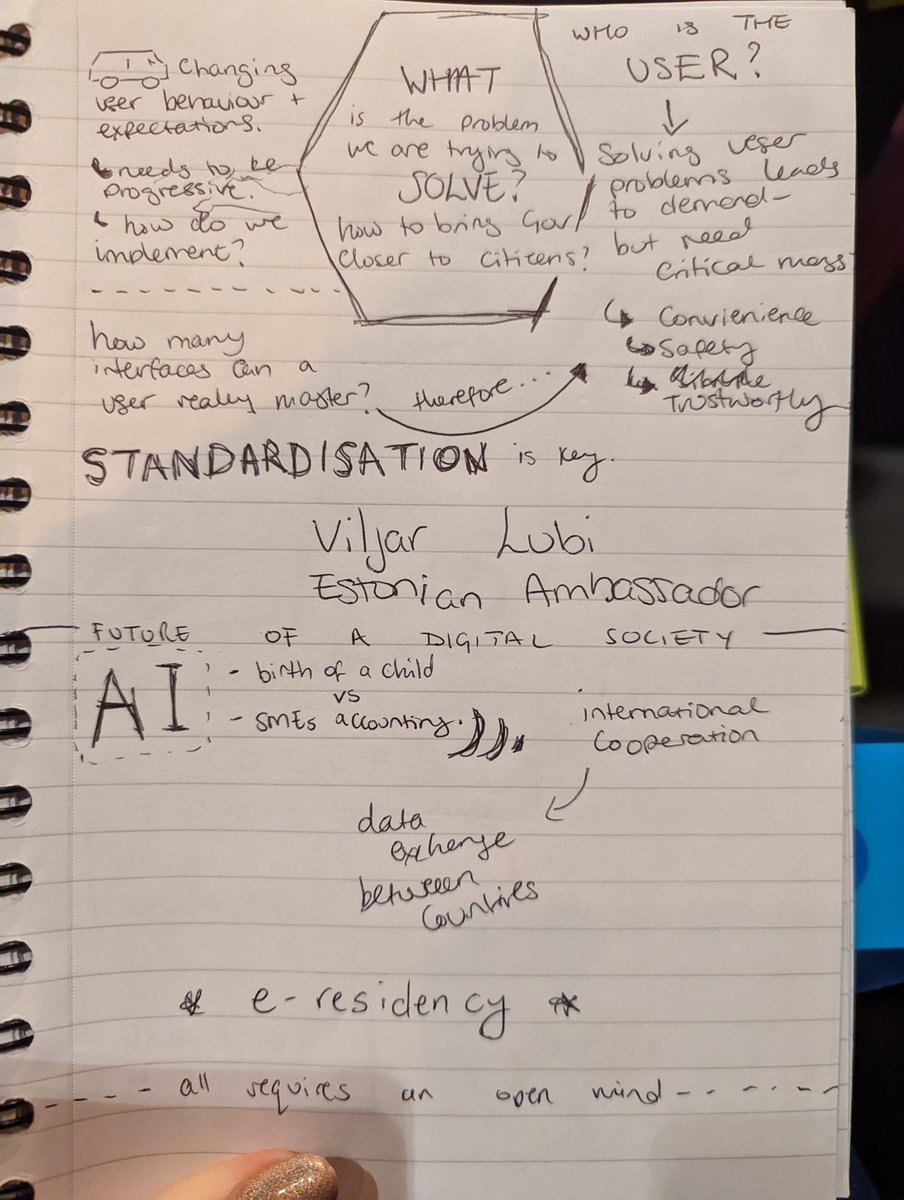 Changing
user behaviour +
expectations.
needs to be
progressive.
how do we
implement?
WHAT
is the problem
we are trying to
SOLVE?
how to bring Gov
closer to citicens?
WHO IS THE
USER?
Solving user
problems leads
to demand -
but need
critical mass
Convienience
Safety
Trustworthy
how many
interfaces can a
user really master?
therefore...
STANDARDISATION is key.
Viljar Lubi
Estonian Ambassador
FUTURE OF A DIGITAL SOCIETY
AI
- birth of a child
vs
- SMEs accounting.
international
cooperation
data
exhenge
between
countries
* e-residency *
all requires an open mind